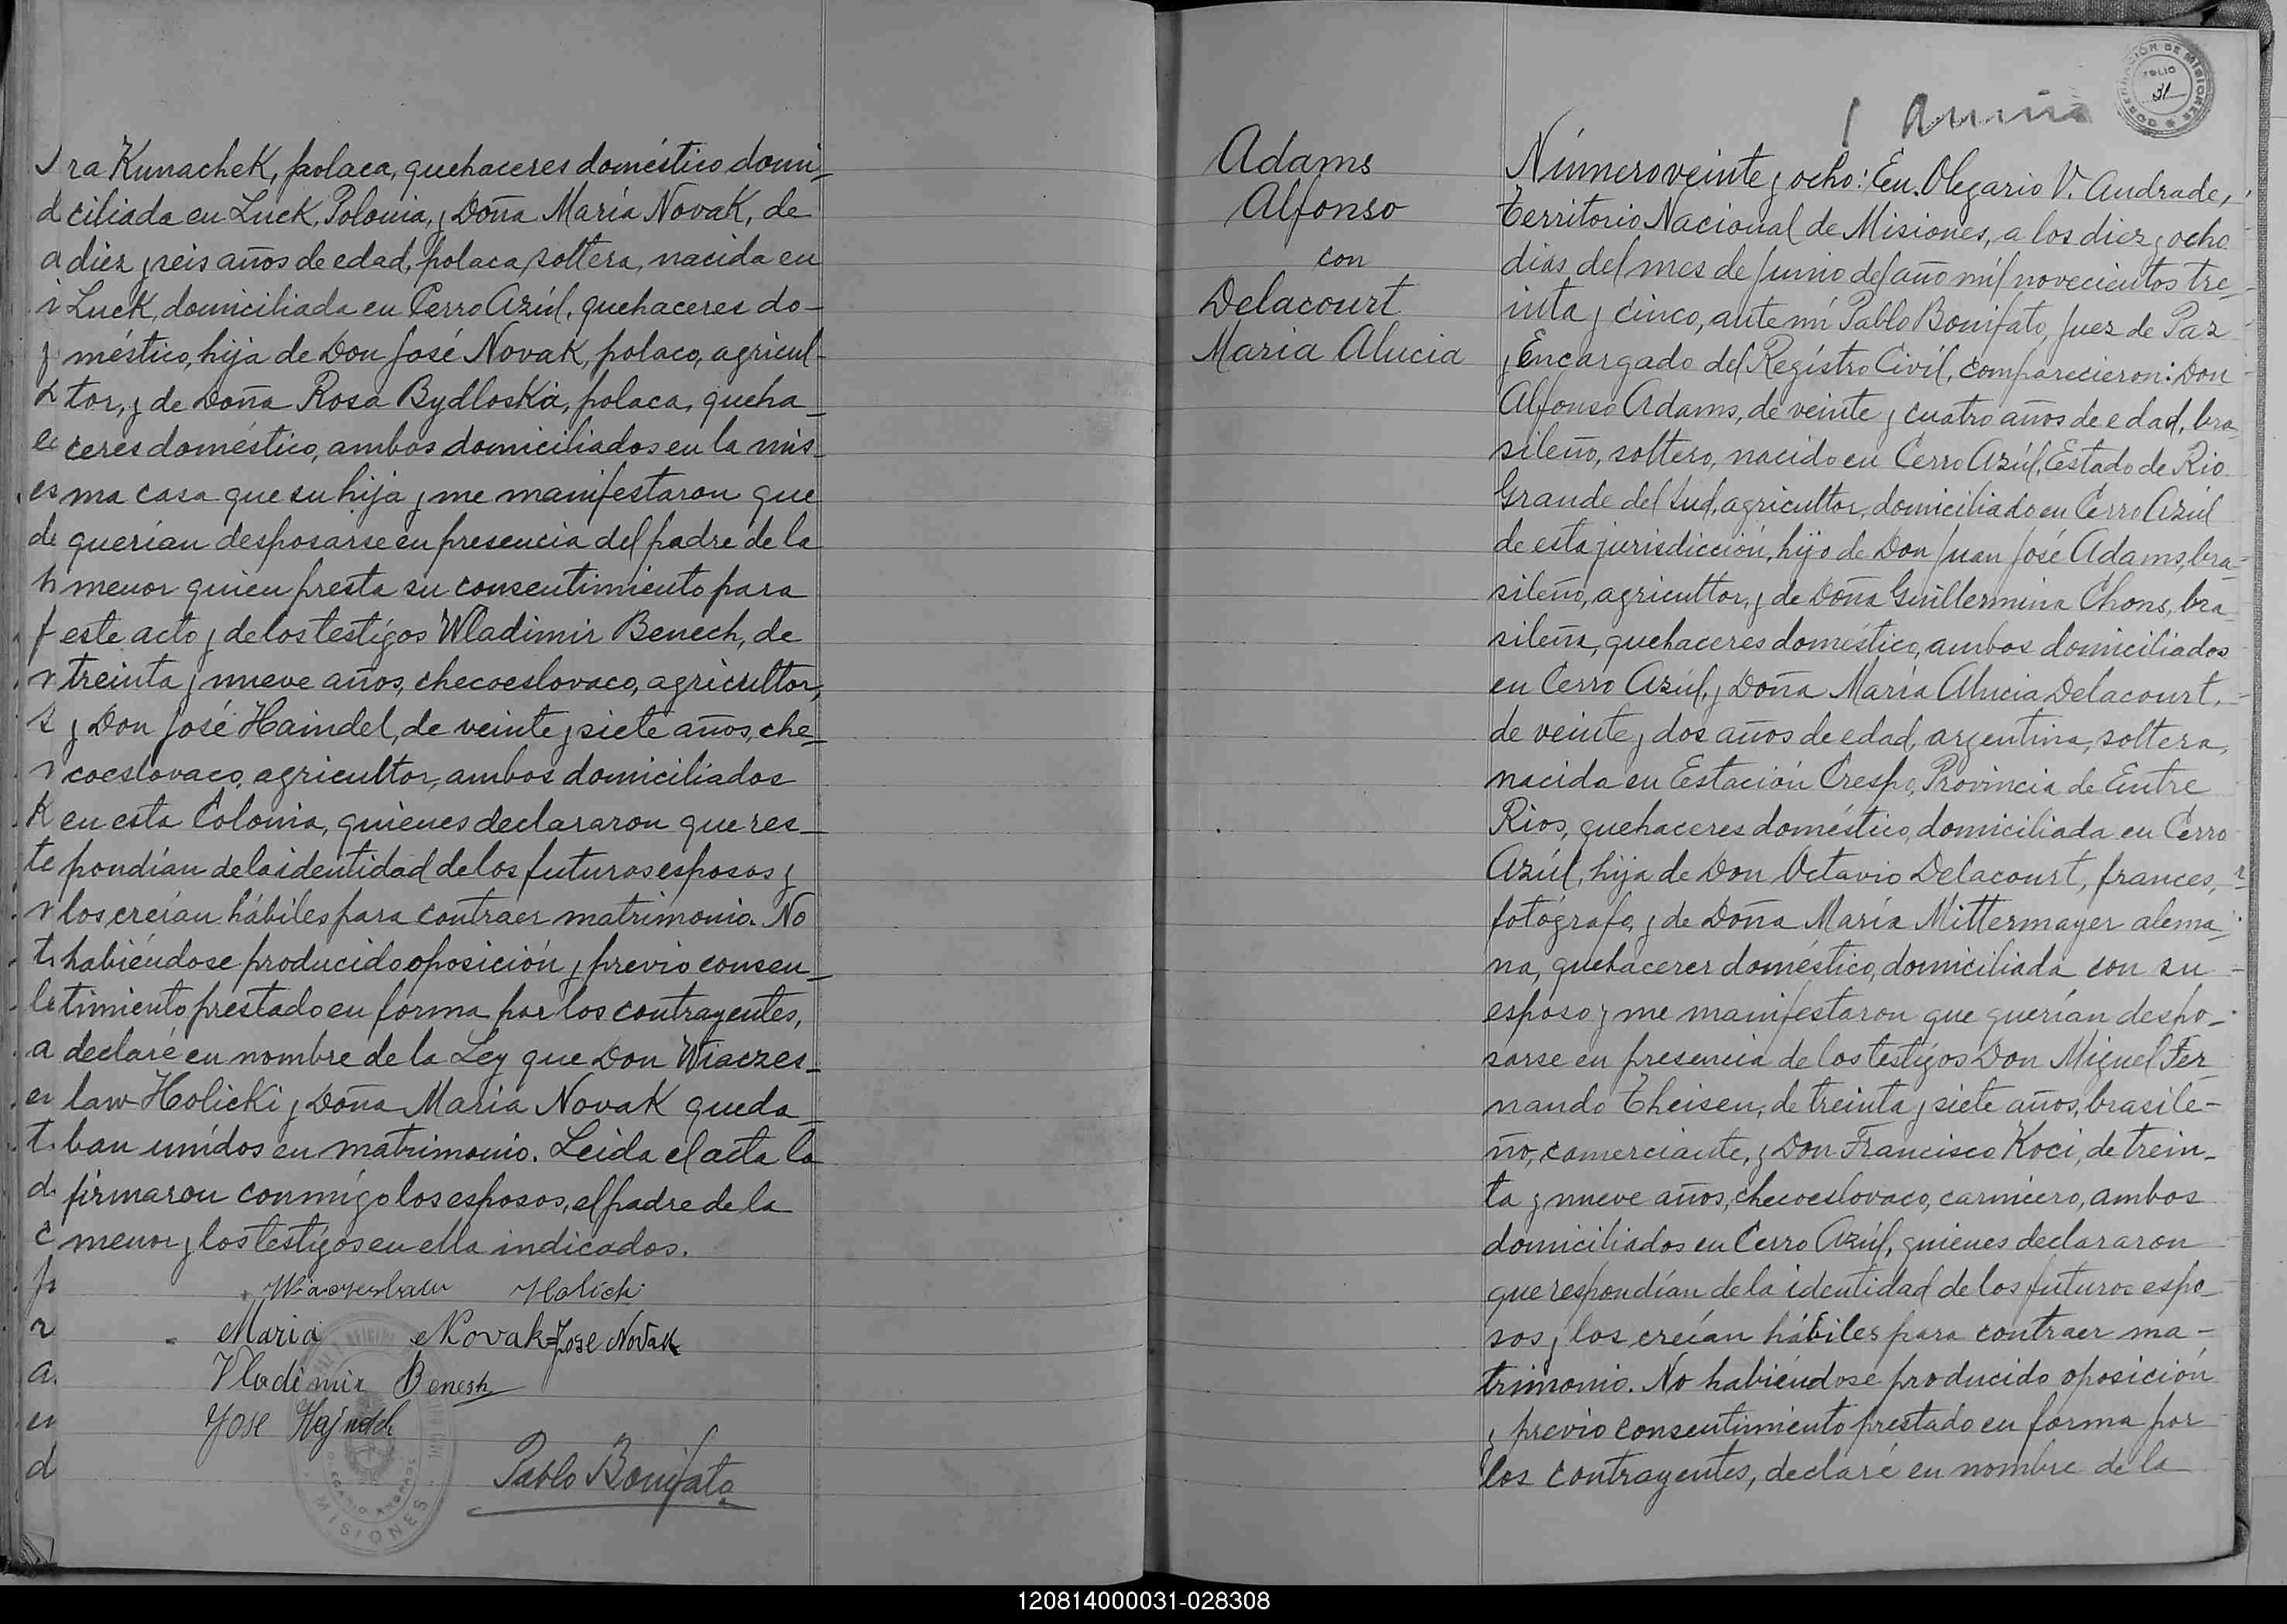 ra Kunachek, polaca, quehaceres doméstico domi-
ciliada en Luck, Polonia, y Doña María Novak, de
diez y seis años de edad, polaca, soltera, nacida en
Luck, domiciliada en Cerro Azúl, quehaceres do-
méstico, hija de Don José Novak, polaco, agricul-
tor, y de Doña Rosa Bydloska, polaca, queha-
ceres doméstico, ambos domiciliados en la mis-
ma casa que su hija y me manifestaron que
querían desposarse en presencia del padre de la
menor quien presta su consentimiento para
este acto y de los testígos Wladimir Benech, de
treinta y nueve años, checoeslovaco, agricultor,
y Don José Haindel, de veinte y siete años, che-
coeslovaco, agricultor, ambos domiciliados
en esta Colonia, quienes declararon que res-
pondían de la identidad de los futuros esposos y
los creían hábiles para contraer matrimonio. No
habiéndose producido oposición y previo consen-
timiento prestado en forma por los contrayentes,
declaré en nombre de la Ley que Don Wiaczes-
law Holicki y Doña Maria Novak queda-
ban unídos en matrimonio. Leida el acta la
firmaron conmígo los esposos, el padre de la
menor y los testígos en ella indicados.
Holicki
Maria Novak=Jose Novak
Vladimir Benesh
Jose Hajndl
Pablo Bonifato
MISIONES
GOBERNACIÓN DE MISIONES
FOLIO
31
Adams
Alfonso
con
Delacourt
Maria Alucia
Número veinte y ocho: En Olegario V. Andrade,
Territorio Nacional de Misiones, a los diez y ocho
días del mes de Junio del año mil novecientos tre-
inta y cinco, ante mí Pablo Bonifato, Juez de Paz
y Encargado del Regístro Civíl, comparecieron: Don
Alfonso Adams, de veinte y cuatro años de edad, bra-
sileño, soltero, nacido en Cerro Azúl, Estado de Rio
Grande del Sud, agricultor, domiciliado en Cerro Azúl
de esta jurisdicción, hijo de Don Juan José Adams, bra-
sileño, agricultor, y de Doña Guillermina Chons, bra-
sileña, quehaceres doméstico, ambos domiciliados
en Cerro Azúl, y Doña María Alucia Delacourt,
de veinte y dos años de edad, argentina, soltera,
nacida en Estación Crespo, Provincia de Entre
Rios, quehaceres doméstico, domiciliada en Cerro
Azúl, hija de Don Octavio Delacourt, frances,
fotógrafo, y de Doña María Mittermayer alema-
na, quehaceres doméstico, domiciliada con su
esposo y me manifestaron que querían despo-
sarse en presencia de los testígos Don Miguel Fer-
nando Theisen, de treinta y siete años, brasile-
ño, comerciante, y Don Francisco Koci, de trein-
ta y nueve años, checoeslovaco, carnicero, ambos
domiciliados en Cerro Azúl, quienes declararon
que respondían de la identidad de los futuros espo-
sos y los creían hábiles para contraer ma-
trimonio. No habiéndose producido oposición
y previo consentimiento prestado en forma por
los contrayentes, declaré en nombre de la
120814000031-028308